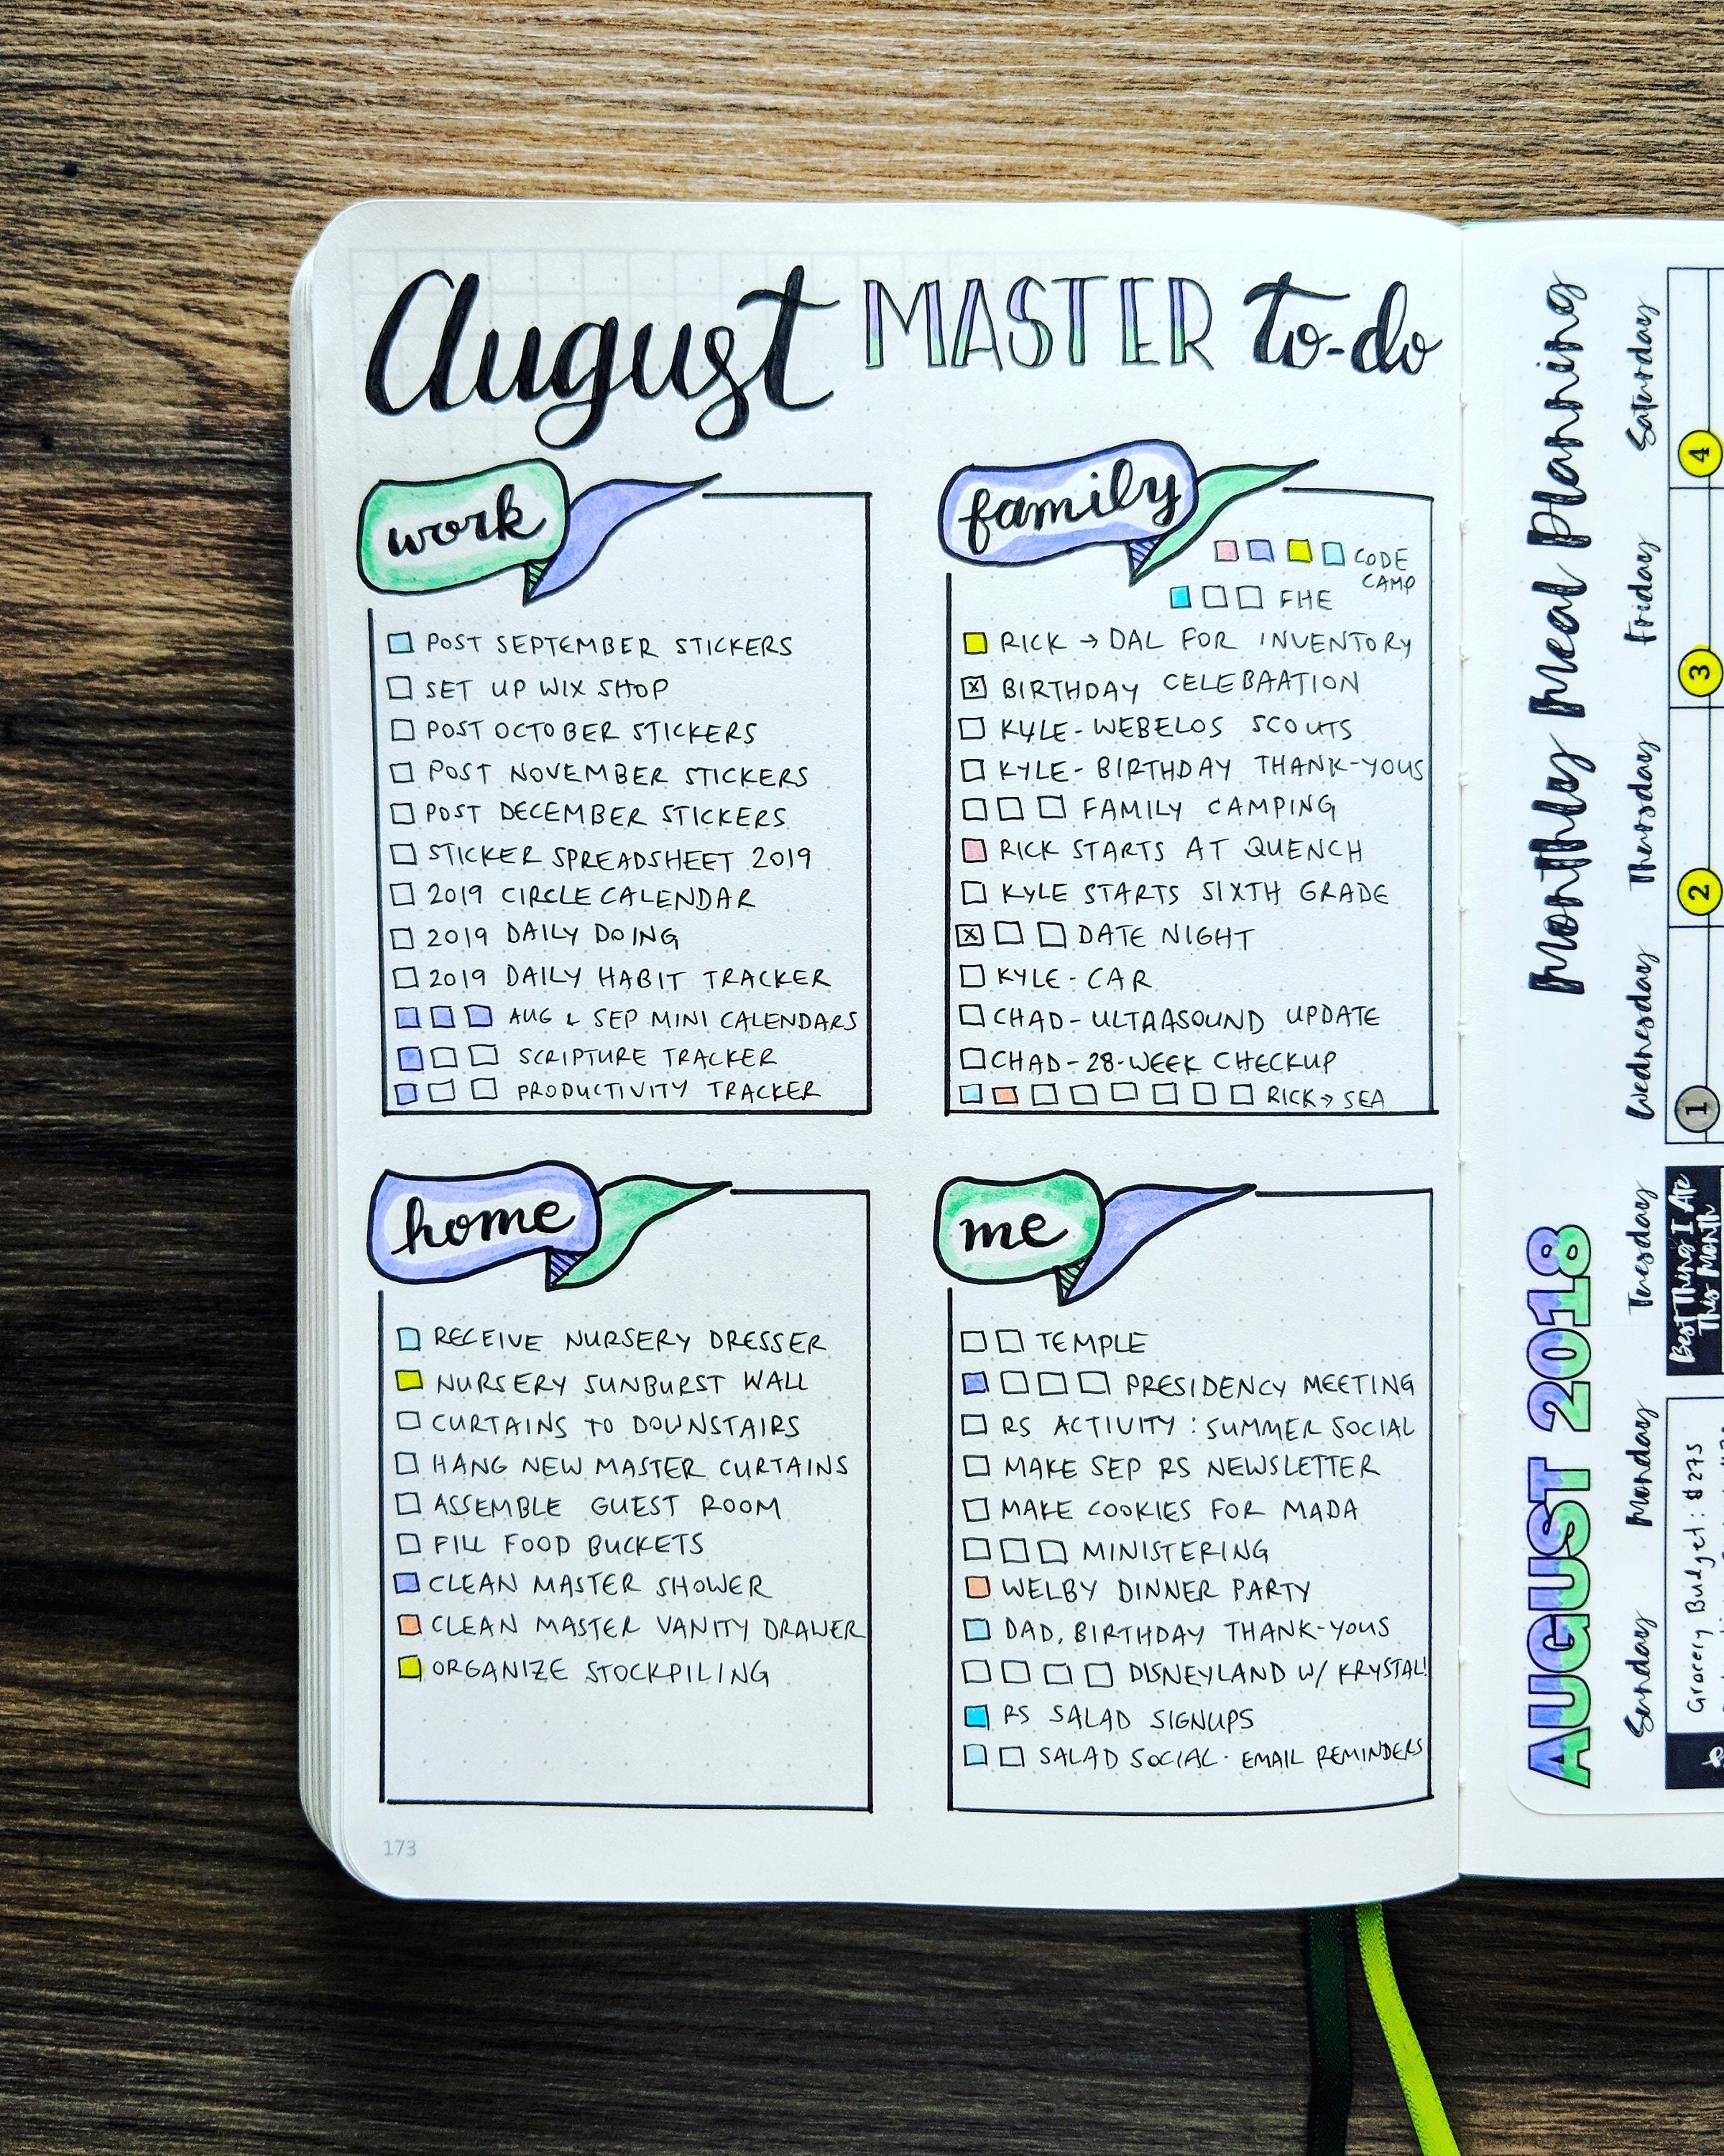 August MASTER to-do
work
POST SEPTEMBER STICKERS
SET UP WIX SHOP
POST OCTOBER STICKERS
POST NOVEMBER STICKERS
POST DECEMBER STICKERS
STICKER SPREADSHEET 2019
2019 CIRCLE CALENDAR
2019 DAILY DOING
2019 DAILY HABIT TRACKER
AUG & SEP MINI CALENDARS
SCRIPTURE TRACKER
PRODUCTIVITY TRACKER
family
CODE
CAMP
FHE
RICK → DAL FOR INVENTORY
BIRTHDAY CELEBRATION
KYLE - WEBELOS SCOUTS
KYLE - BIRTHDAY THANK-YOUS
FAMILY CAMPING
RICK STARTS AT QUENCH
KYLE STARTS SIXTH GRADE
DATE NIGHT
KYLE - CAR
CHAD - ULTRASOUND UPDATE
CHAD - 28-WEEK CHECKUP
RICK → SEA
home
RECEIVE NURSERY DRESSER
NURSERY SUNBURST WALL
CURTAINS TO DOWNSTAIRS
HANG NEW MASTER CURTAINS
ASSEMBLE GUEST ROOM
FILL FOOD BUCKETS
CLEAN MASTER SHOWER
CLEAN MASTER VANITY DRAWER
ORGANIZE STOCKPILING
me
TEMPLE
PRESIDENCY MEETING
RS ACTIVITY : SUMMER SOCIAL
MAKE SEP RS NEWSLETTER
MAKE COOKIES FOR MADA
MINISTERING
WELBY DINNER PARTY
DAD, BIRTHDAY THANK-YOUS
DISNEYLAND W/ KRYSTAL!
RS SALAD SIGNUPS
SALAD SOCIAL · EMAIL REMINDERS
173
AUGUST 2018
Monthly Meal Planning
Sunday
Monday
Tuesday
Wednesday
Thursday
Friday
Saturday
Grocery Budget : $275
Best Thing I Ate
This Month
1
2
3
4